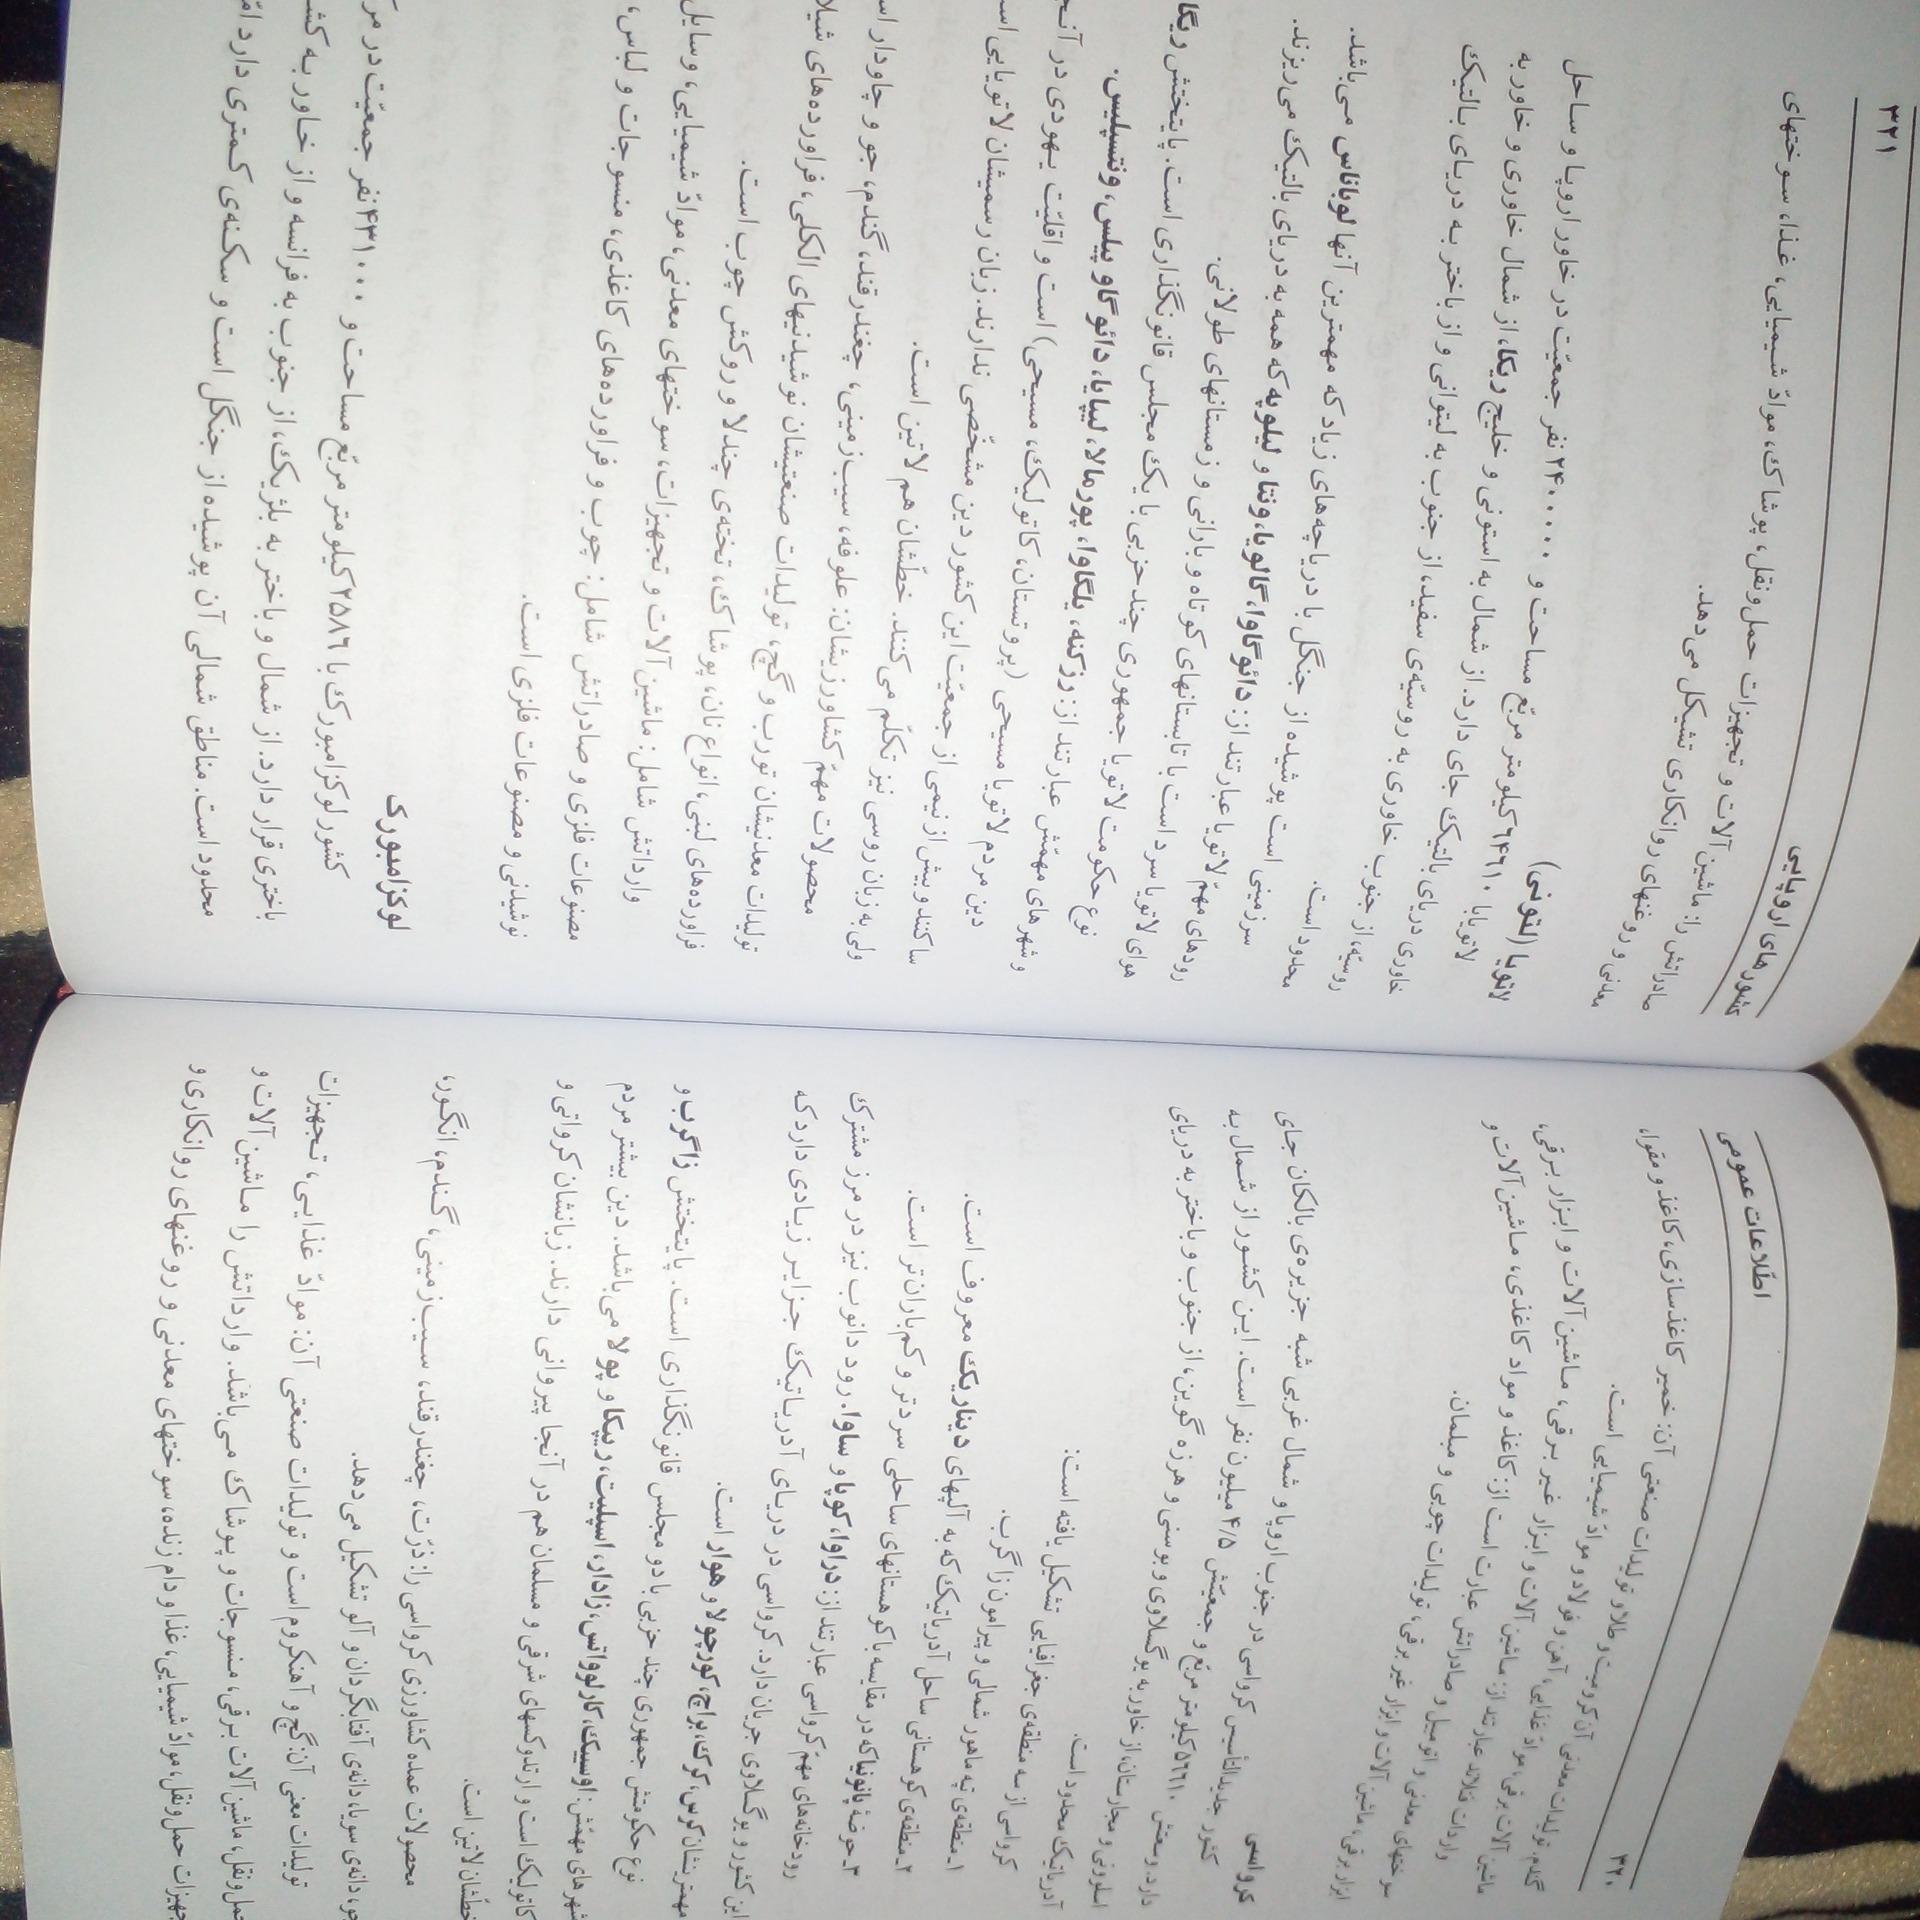 ۳۲۰
اطّلاعات عمومی
گندم، تولیدات معدنی آن کرومیت و طلا و تولیدات صنعتی آن: خمیر کاغذسازی، کاغذ و مقوا،
آهن و فولاد و موادّ شیمیایی است.
ماشین آلات برقی، موادّ غذایی، ماشین آلات و ابزار غیر برقی، ماشین آلات و ابزار برقی،
واردات فنلاند عبارتند از:
سوختهای معدنی و اتومبیل و صادراتش عبارت است از: کاغذ و مواد کاغذی، ماشین آلات و
ابزار برقی، ماشین آلات و ابزار غیر برقی، تولیدات چوبی و مبلمان.
کرواسی
کشور جدیدالتأسیس کرواسی در جنوب اروپا و شمال غربی شبه جزیره‌ی بالکان جای
دارد. وسعتش ۵۶۶۱۰ کیلومتر مربّع و جمعیّتش ۴/۵ میلیون نفر است. این کشور از شمال به
اسلوونی و مجارستان، از خاور به یوگسلاوی و بوسنی و هرزه گوین، از جنوب و باختر به دریای
آدریاتیک محدود است.
کرواسی از سه منطقه‌ی جغرافیایی تشکیل یافته است:
۱ـ منطقه‌ی تپه ماهور شمالی و پیرامون زاگرب.
۲ـ منطقه‌ی کوهستانی ساحل آدریاتیک که به آلپهای دیناریک معروف است.
۳ـ حوضهٔ پانونیا که در مقایسه با کوهستانهای ساحلی سردتر و کم‌باران‌تر است.
رودخانه‌های مهمّ کرواسی عبارتند از: دراوا، کوپا و ساوا. رود دانوب نیز در مرز مشترک
این کشور و یوگسلاوی جریان دارد. کرواسی در دریای آدریاتیک جزایر زیادی دارد که
مهمترینشان کرس، کرک، براچ، کورچولا و هوار است.
نوع حکومتش جمهوری چند حزبی با دو مجلس قانونگذاری است. پایتختش زاگرب و
شهرهای مهمّش: اوسیک، کارلوواتس، زادار، اسپلیت، ریبکا و پولا می‌باشد. دین بیشتر مردم
کاتولیک است و ارتدوکسهای شرقی و مسلمان هم در آنجا پیروانی دارند. زبانشان کرواتی و
خطّشان لاتین است.
محصولات عمده کشاورزی کرواسی را: ذرّت، چغندرقند، سیب‌زمینی، گندم، انگور،
جو، دانه‌ی سویا، دانه‌ی آفتابگردان و آلو تشکیل می‌دهد.
تولیدات معنی آن: گچ و آهنکروم است و تولیدات صنعتی آن: موادّ غذایی، تجهیزات
حمل‌ونقل، ماشین آلات برقی، منسوجات و پوشاک می‌باشد. وارداتش را ماشین آلات و
تجهیزات حمل‌ونقل، موادّ شیمیایی، غذا و دام زنده، سوختهای معدنی و روغنهای روانکاری و
کشورهای اروپایی
۳۲۱
صادراتش را: ماشین آلات و تجهیزات حمل‌ونقل، پوشاک، موادّ شیمیایی، غذا، سوختهای
معدنی و روغنهای روانکاری تشکیل می‌دهد.
لاتویا (لتونی)
لاتویا با ۶۴۶۱۰ کیلومتر مربّع مساحت و ۲۴۰۰۰۰۰ نفر جمعیّت در خاور اروپا و ساحل
خاوری دریای بالتیک جای دارد. از شمال به استونی و خلیج ریگا، از شمال خاوری و خاور به
روسیّه، از جنوب خاوری به روسیّه‌ی سفید، از جنوب به لیتوانی و از باختر به دریای بالتیک
محدود است.
سرزمینی است پوشیده از جنگل با دریاچه‌های زیاد که مهمترین آنها لوباناس می‌باشد.
رودهای مهمّ لاتویا عبارتند از: دائوگاوا، گالویا، ونتا و لیلوپه که همه به دریای بالتیک می‌ریزند.
هوای لاتویا سرد است با تابستانهای کوتاه و بارانی و زمستانهای طولانی.
نوع حکومت لاتویا جمهوری چند حزبی با یک مجلس قانونگذاری است. پایتختش ریگا
و شهرهای مهمّش عبارتند از: رزکنه، یلگاوا، یورمالا، لیپایا، دائوگاوپیلس، ونتسپلیس.
دین مردم لاتویا مسیحی (پروتستان، کاتولیک، مسیحی) است و اقلیّت یهودی در
ساکنند و بیش از نیمی از جمعیّت این کشور دین مشخّصی ندارند. زبان رسمیشان لاتویایی
ولی به زبان روسی نیز تکلّم می‌کنند. خطّشان هم لاتین است.
محصولات مهمّ کشاورزیشان: علوفه، سیب‌زمینی، چغندرقند، گندم، جو و چاودار
تولیدات معدنیشان تورب و گچ، تولیدات صنعتیشان نوشیدنیهای الکلی، فراورده‌های
فراورده‌های لبنی، انواع نان، پوشاک، تخته‌ی چندلا و روکش چوب است.
وارداتش شامل: ماشین آلات و تجهیزات، سوختهای معدنی، موادّ شیمیایی، وسایل
مصنوعات فلزی و صادراتش شامل: چوب و فراورده‌های کاغذی، منسوجات و لباس،
نوشیدنی و مصنوعات فلزی است.
لوکزامبورک
کشور لوکزامبورک با ۲۵۸۶ کیلومتر مربّع مساحت و ۴۳۱۰۰۰ نفر جمعیّت در
باختری قرار دارد. از شمال و باختر به بلژیک، از جنوب به فرانسه و از خاور به
محدود است. مناطق شمالی آن پوشیده از جنگل است و سکنه‌ی کمتری دارد